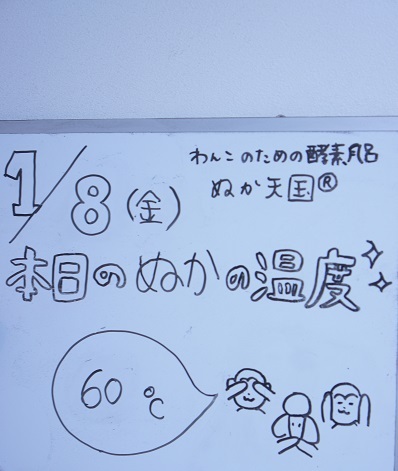 わんこのための酵素風呂
ぬか天国®
1/8(金)
本日のぬかの温度
60℃